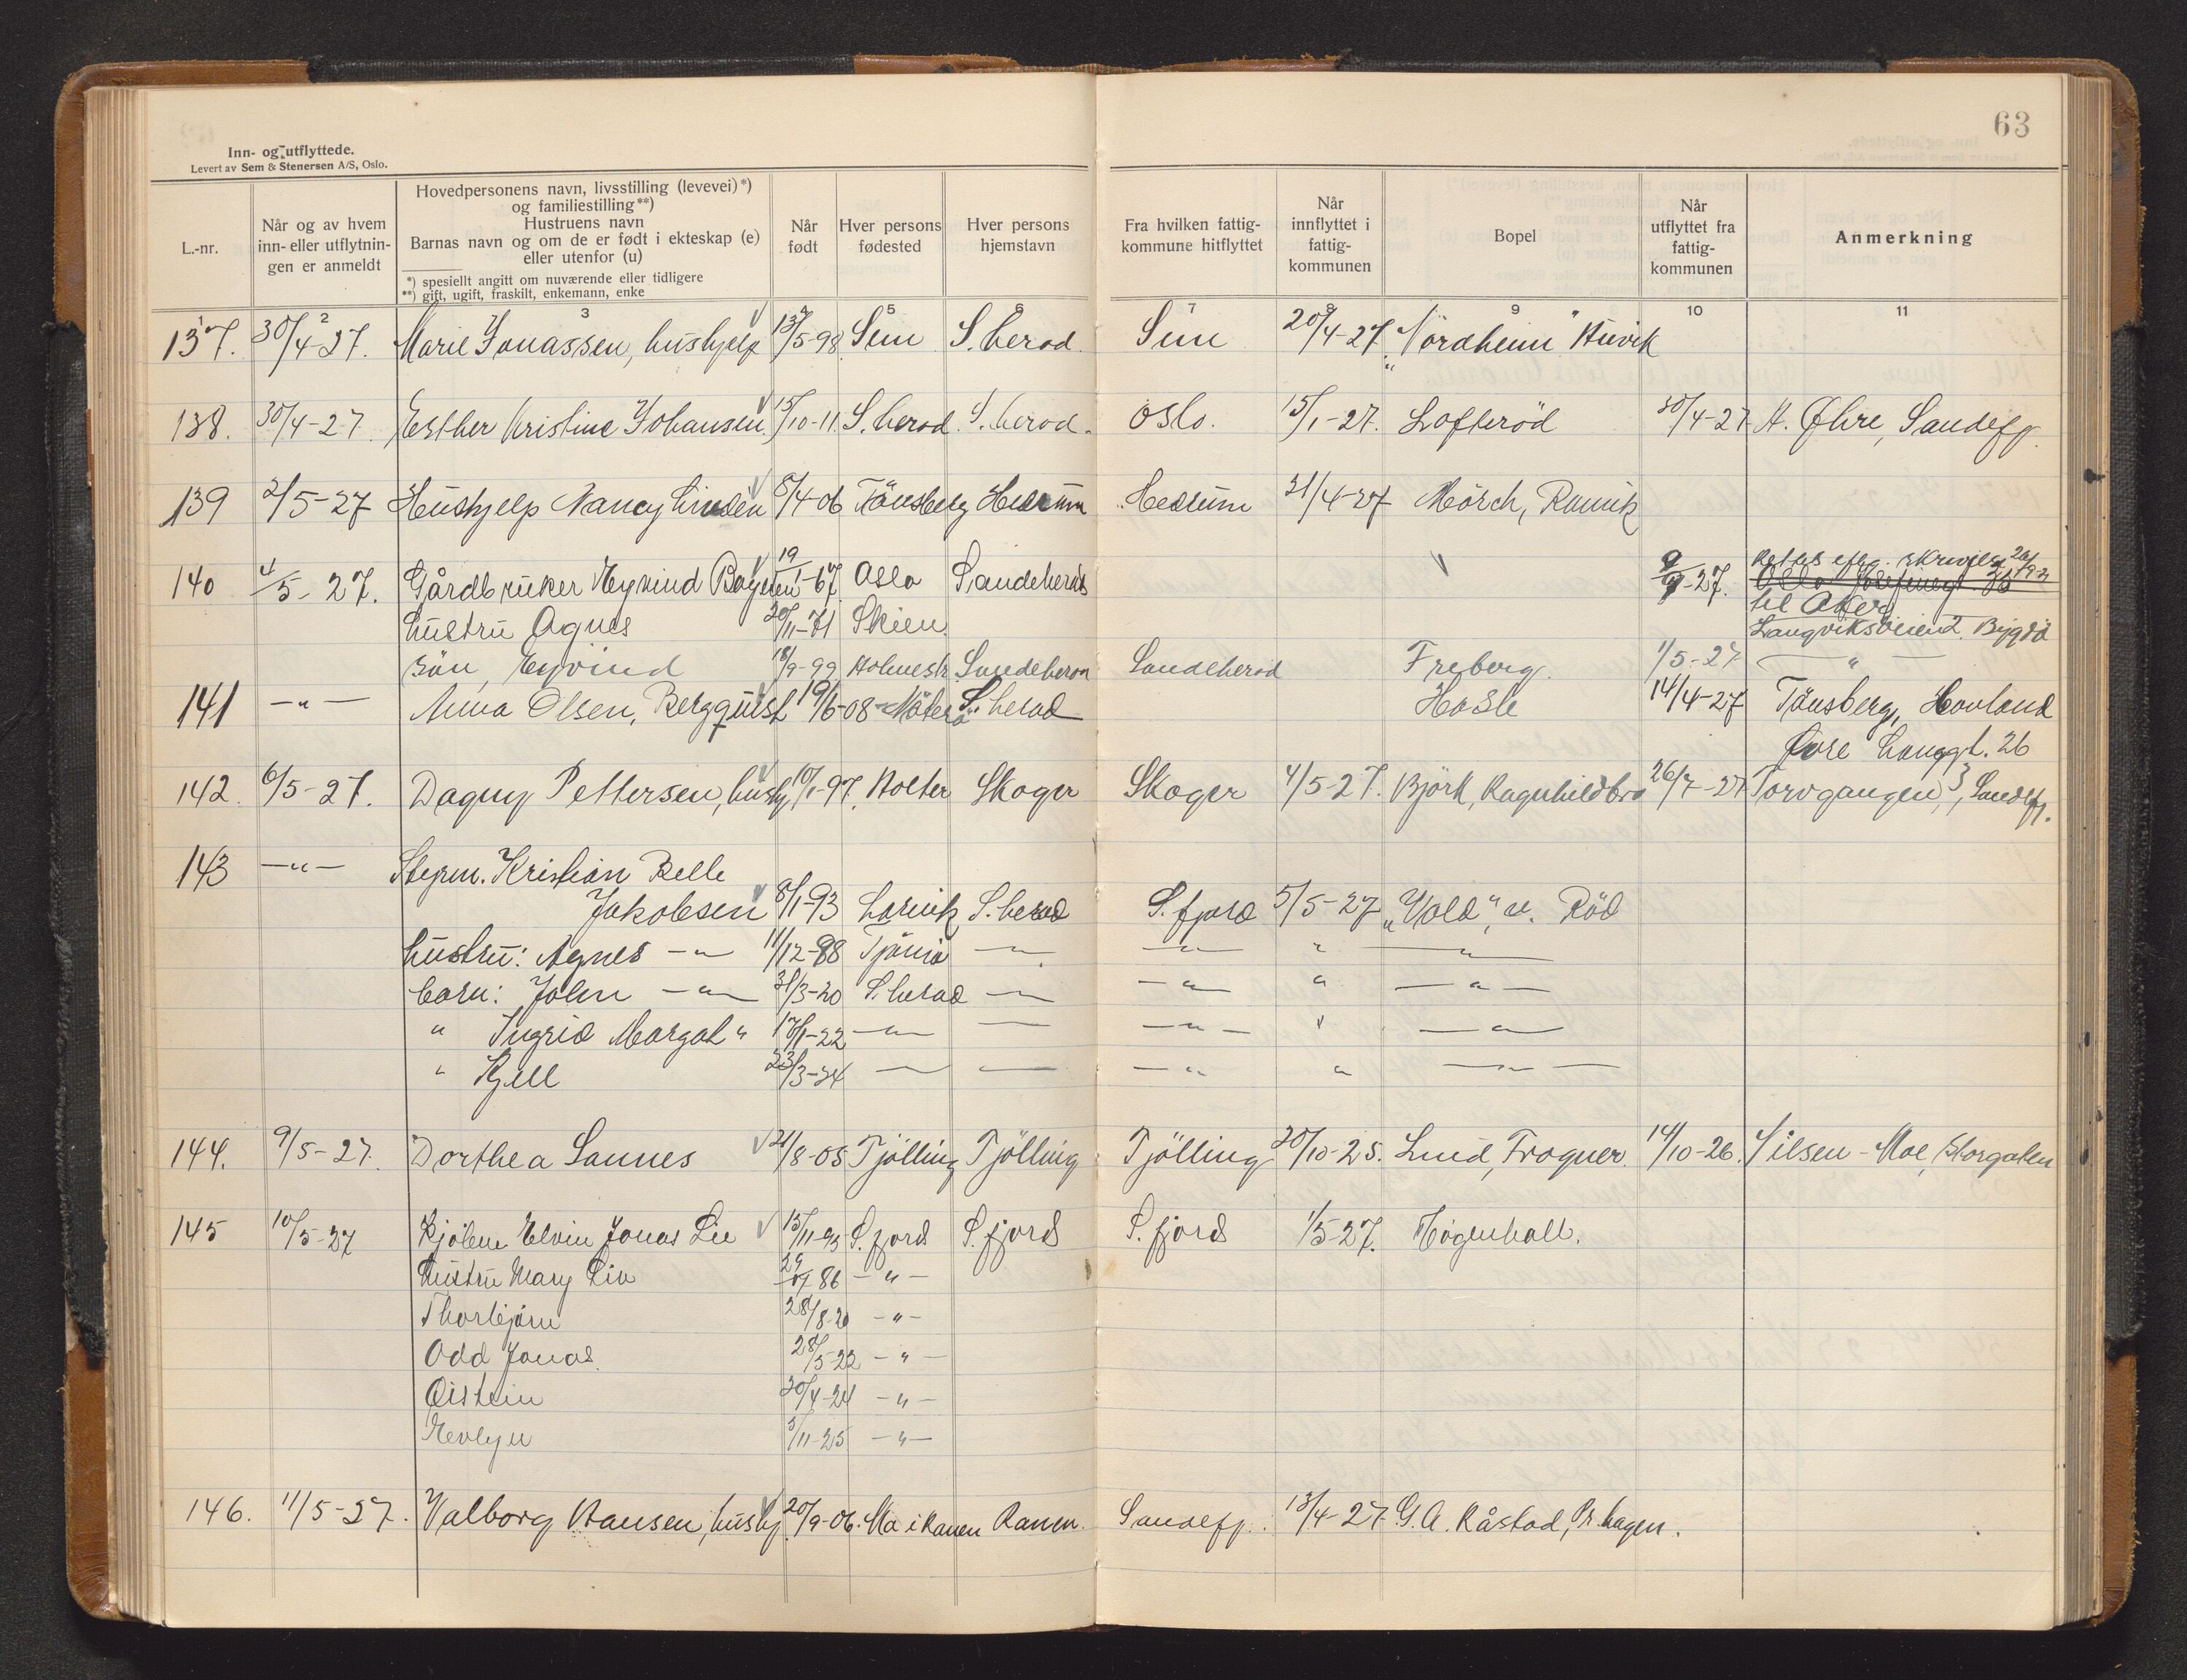 63
Inn- og utflyttede.
Levert av Sem & Stenersen A/S, Oslo.
L.-nr.
Når og av hvem
inn- eller utflytnin-
gen er anmeldt
Hovedpersonens navn, livsstilling (levevei) *)
og familiestilling **)
Hustruens navn
Barnas navn og om de er født i ekteskap (e)
eller utenfor (u)
*) spesiellt angitt om nuværende eller tidligere
**) gift, ugift, fraskilt, enkemann, enke
Når
født
Hver persons
fødested
Hver persons
hjemstavn
Fra hvilken fattig-
kommune hitflyttet
Når
innflyttet i
fattig-
kommunen
Bopel
Når
utflyttet fra
fattig-
kommunen
Anmerkning
2 3 5 6 7 9 10 11
137. 30/4-27. Marie Jonassen, hushjelp /5-98 Sem S. herad. Sem 20/4-27 "Nordheim" Huvik
138. 30/4-27. Esther Kristine Johansen 15/10-11 S. herad. S. herad. Oslo. 15/1-27. Lofterød 30/4-27 H. Øhre, Sandefj.
139 2/5-27 Hushjelp Nancy Linden 8/4-06 Tönsberg Hedrum Hedrum 21/4-27 Mörch, Ranvik
140 4/5-27. Gårdbruker Eyvind 19/1-67. Oslo Sandeherad 9/9-27. Oslo
til Aker
hustru Agnes 20/11-71 Skien Langviksveien 2. Bygdö
sön, Eyvind 18/9-99 Holmestr. Sandeherad Sandeherad Freberg. 1/5-27 — " —
141 —"— Anna Olsen, Bergquist 19/6-08 Nöterö S. herad Hasle 14/4-27 Tönsberg, Hovland
Øvre Langgt. 26
142. 6/5-27. Dagny Pettersen, hushj. 10/1-97. Holter Skoger Skoger 4/5-27. Björk, Ragnhildbro 26/7-27 Torvgangen 3, Sandefj.
143 —"— Styrm. Kristian Belle
Jakobsen 8/1-93 Larvik S. herad S. fjord 5/5-27 "Vold", v. Röd
hustru: Agnes —"— 11/12-88 Tjömö —"— —"— " —"—
barn: John —"— 21/3-20 S. herad —"— —"— " —"—
" Ingrid Margot " 17/1-22 —"— — —"— " —"—
" Kjell 23/3-24 — — —"— " —"—
144. 9/5-27. Dorthea Sannes 21/8-05 Tjölling Tjölling Tjölling 20/10-25. Lund, Frogner. 14/10-26. Nilsen-Moe, Storgaten
145 10/5-27 Elvin Jonas Lie 15/11-93 S. fjord S. fjord S. fjord 1/5-27. Högenhall.
hustru Mary Lie 86 —"—
Thorbjörn 28/8-20 —"—
Odd Jonas. 28/5-22 —"—
Øistein 20/4-24 —"—
Evelyn 3/11-25 —"—
146. 11/5-27. Valborg Hansen, hushj. 20/9-06. Mo i Ranen Ranen. Sandefj. 13/4-27. G. A. Råstad, Pr. hagen.